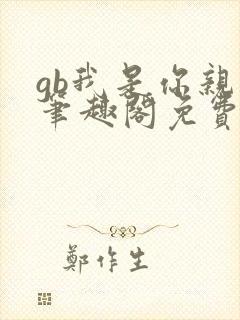 gb我是你親
筆趣閣免費
鄭作生